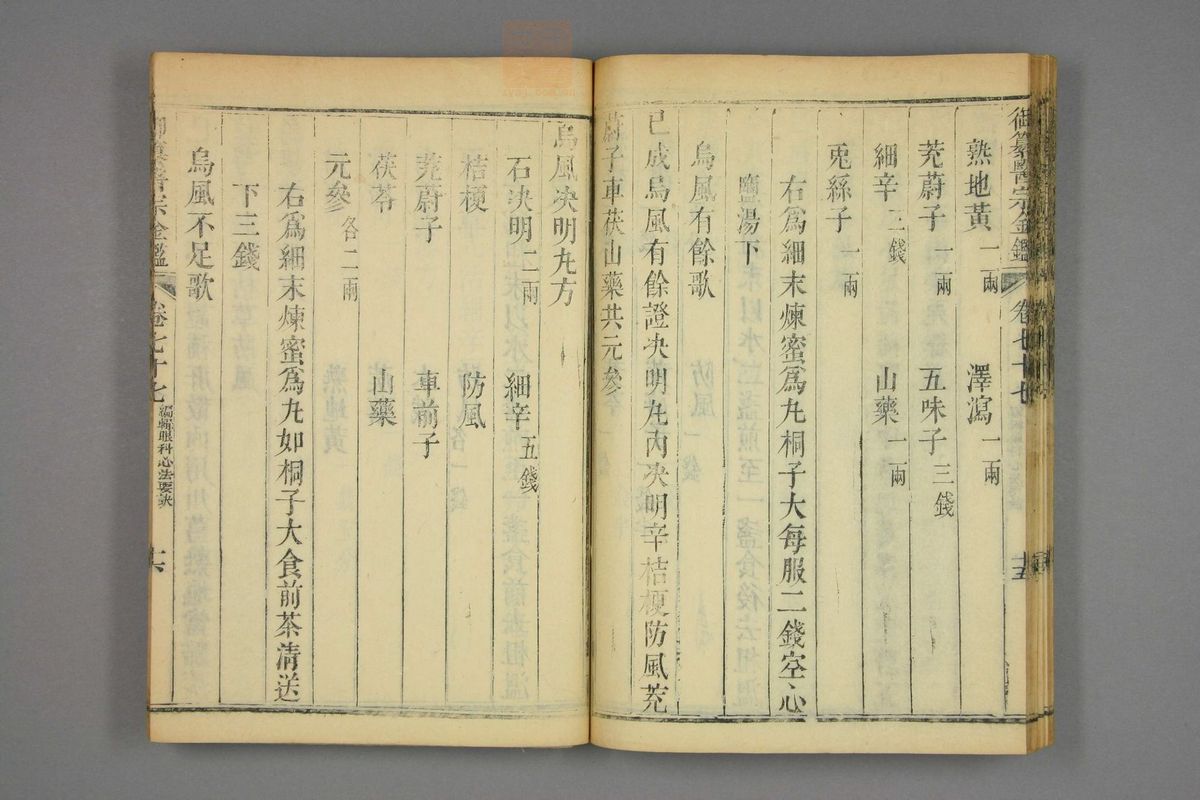 御纂醫宗金鑑 卷七十七 十五
熟地黃一兩 澤瀉一兩
茺蔚子一兩 五味子三錢
細辛二錢 山藥一兩
兎絲子一兩
右爲細末煉蜜爲丸桐子大每服二錢空心
鹽湯下
烏風有餘歌
已成烏風有餘證决明丸內决明辛桔梗防風茺
蔚子車茯山藥共元參
烏風决明丸方
石决明二兩 細辛五錢
桔梗 防風
茺蔚子 車前子
茯苓 山藥
元參各二兩
右爲細末煉蜜爲丸如桐子大食前茶清送
下三錢
烏風不足歌
御纂醫宗金鑑 卷七十七 編輯眼科心法要訣 十六